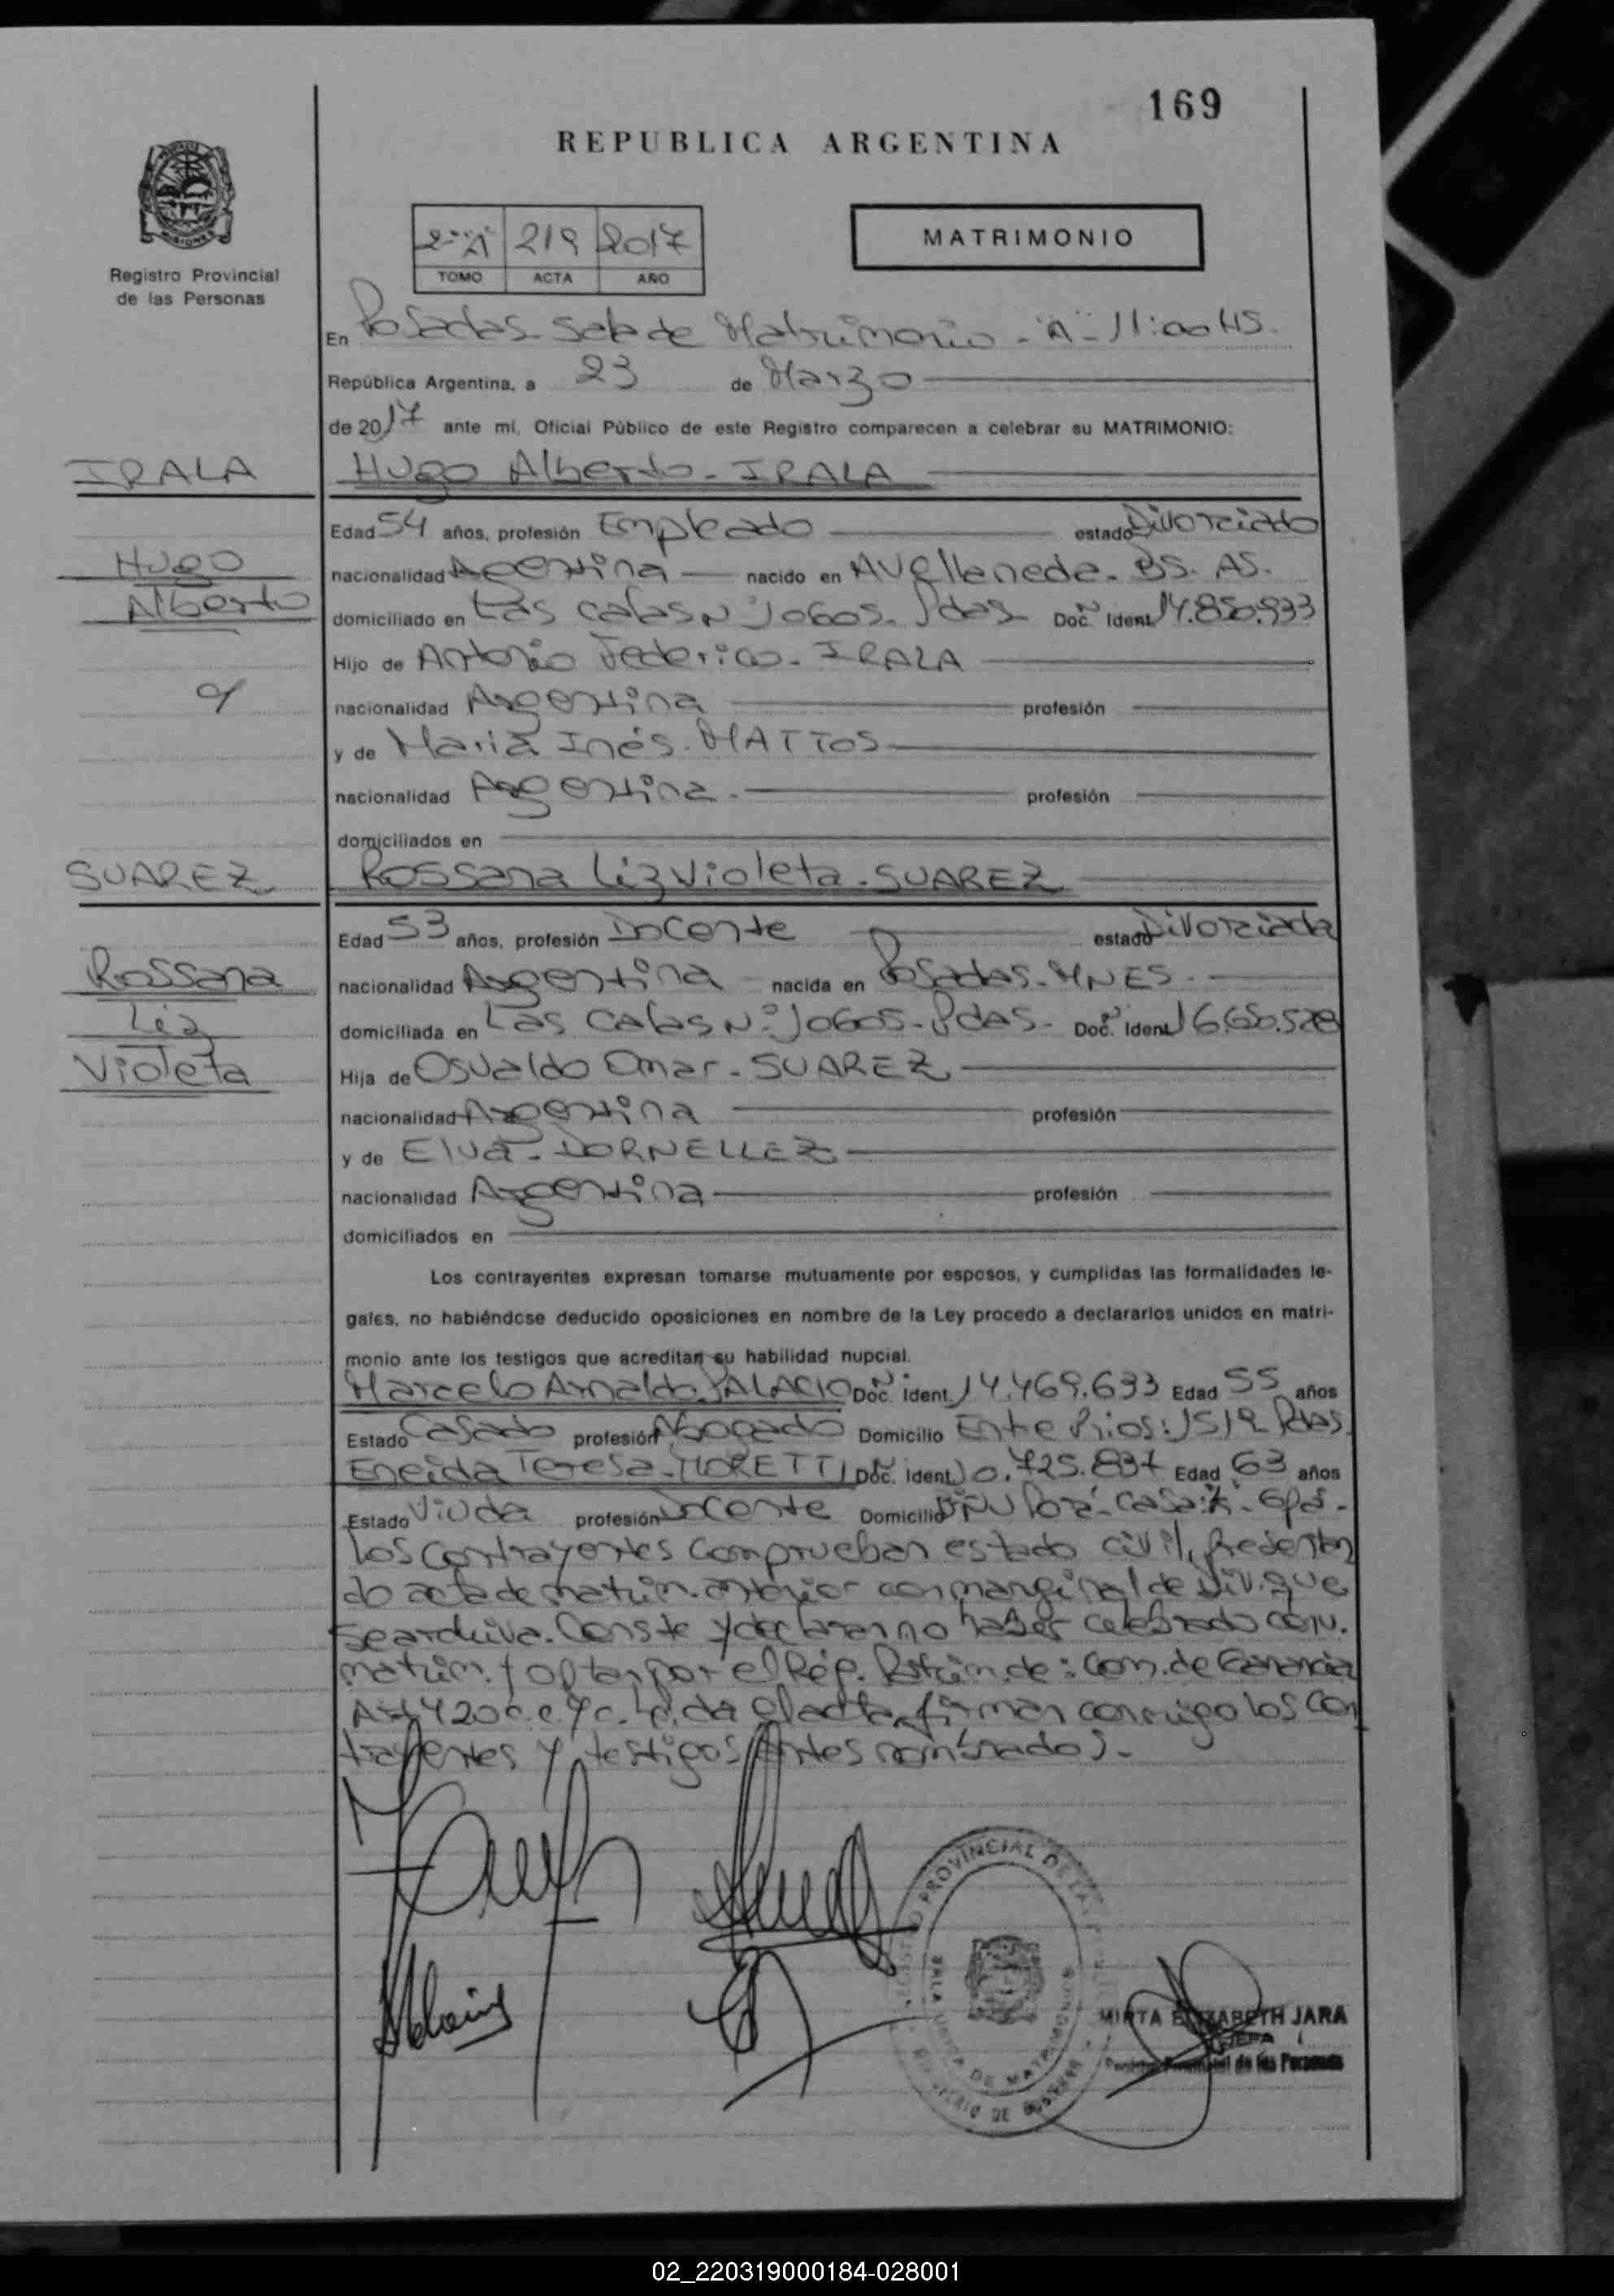 169
REPUBLICA ARGENTINA
MISIONES
Registro Provincial
de las Personas
219 2017
TOMO ACTA AÑO
MATRIMONIO
En Posadas Sala de Matrimonio - "A" - 11:00 HS.
República Argentina, a 23 de Marzo
de 2017 ante mi, Oficial Público de este Registro comparecen a celebrar su MATRIMONIO:
IRALA
Hugo Alberto - IRALA
Edad 54 años, profesión Empleado estado Divorciado
Hugo
nacionalidad Argentina nacido en Avellaneda. BS. AS.
Alberto
domiciliado en Las Calas Nº 10605. Pdas Doc. Ident. 14.850.933
Hijo de Antonio Federico - IRALA
y
nacionalidad Argentina profesión
y de Maria Inés. MATTOS
nacionalidad Argentina. profesión
domiciliados en
SUAREZ
Rossana Liz Violeta - SUAREZ
Edad 53 años, profesión Docente estado Divorciada
Rossana
nacionalidad Argentina nacida en Posadas. MNES.
Liz
domiciliada en Las Calas Nº 10605 - Pdas - Doc. Ident. 16.650.528
Violeta
Hija de Osvaldo Omar - SUAREZ
nacionalidad Argentina profesión
y de Elva - DORNELLEZ
nacionalidad Argentina profesión
domiciliados en
Los contrayentes expresan tomarse mutuamente por esposos, y cumplidas las formalidades le-
gales, no habiéndose deducido oposiciones en nombre de la Ley procedo a declararlos unidos en matri-
monio ante los testigos que acreditan su habilidad nupcial.
Marcelo Arnaldo PALACIO Doc. Ident. 14.469.633 Edad 55 años
Estado Casado profesión Abogado Domicilio Entre Rios: 1519 Pdas.
Eneida Teresa - MORETTI Doc. Ident. 10.725.837 Edad 63 años
Estado Viuda profesión Docente Domicilio Ñu Pora - Casa:
Los contrayentes comprueban estado civil, presentan
do acta de matrim. anterior con marginal de Div. que
se archiva. Conste y declaran no haber celebrado conv.
matrim. y optan por el Rég. Patrim. de: Com. de Ganancia
Art 420 c.c. y c. Leida el acta, firman conmigo los con
trayentes y testigos antes nombrados.-
PROVINCIAL DE LAS
SALA UNICA DE MATRIMONIOS
MINISTERIO DE GOBIERNO
MIRTA ELIZABETH JARA
JEFA
Registro Provincial de las Personas
02_220319000184-028001